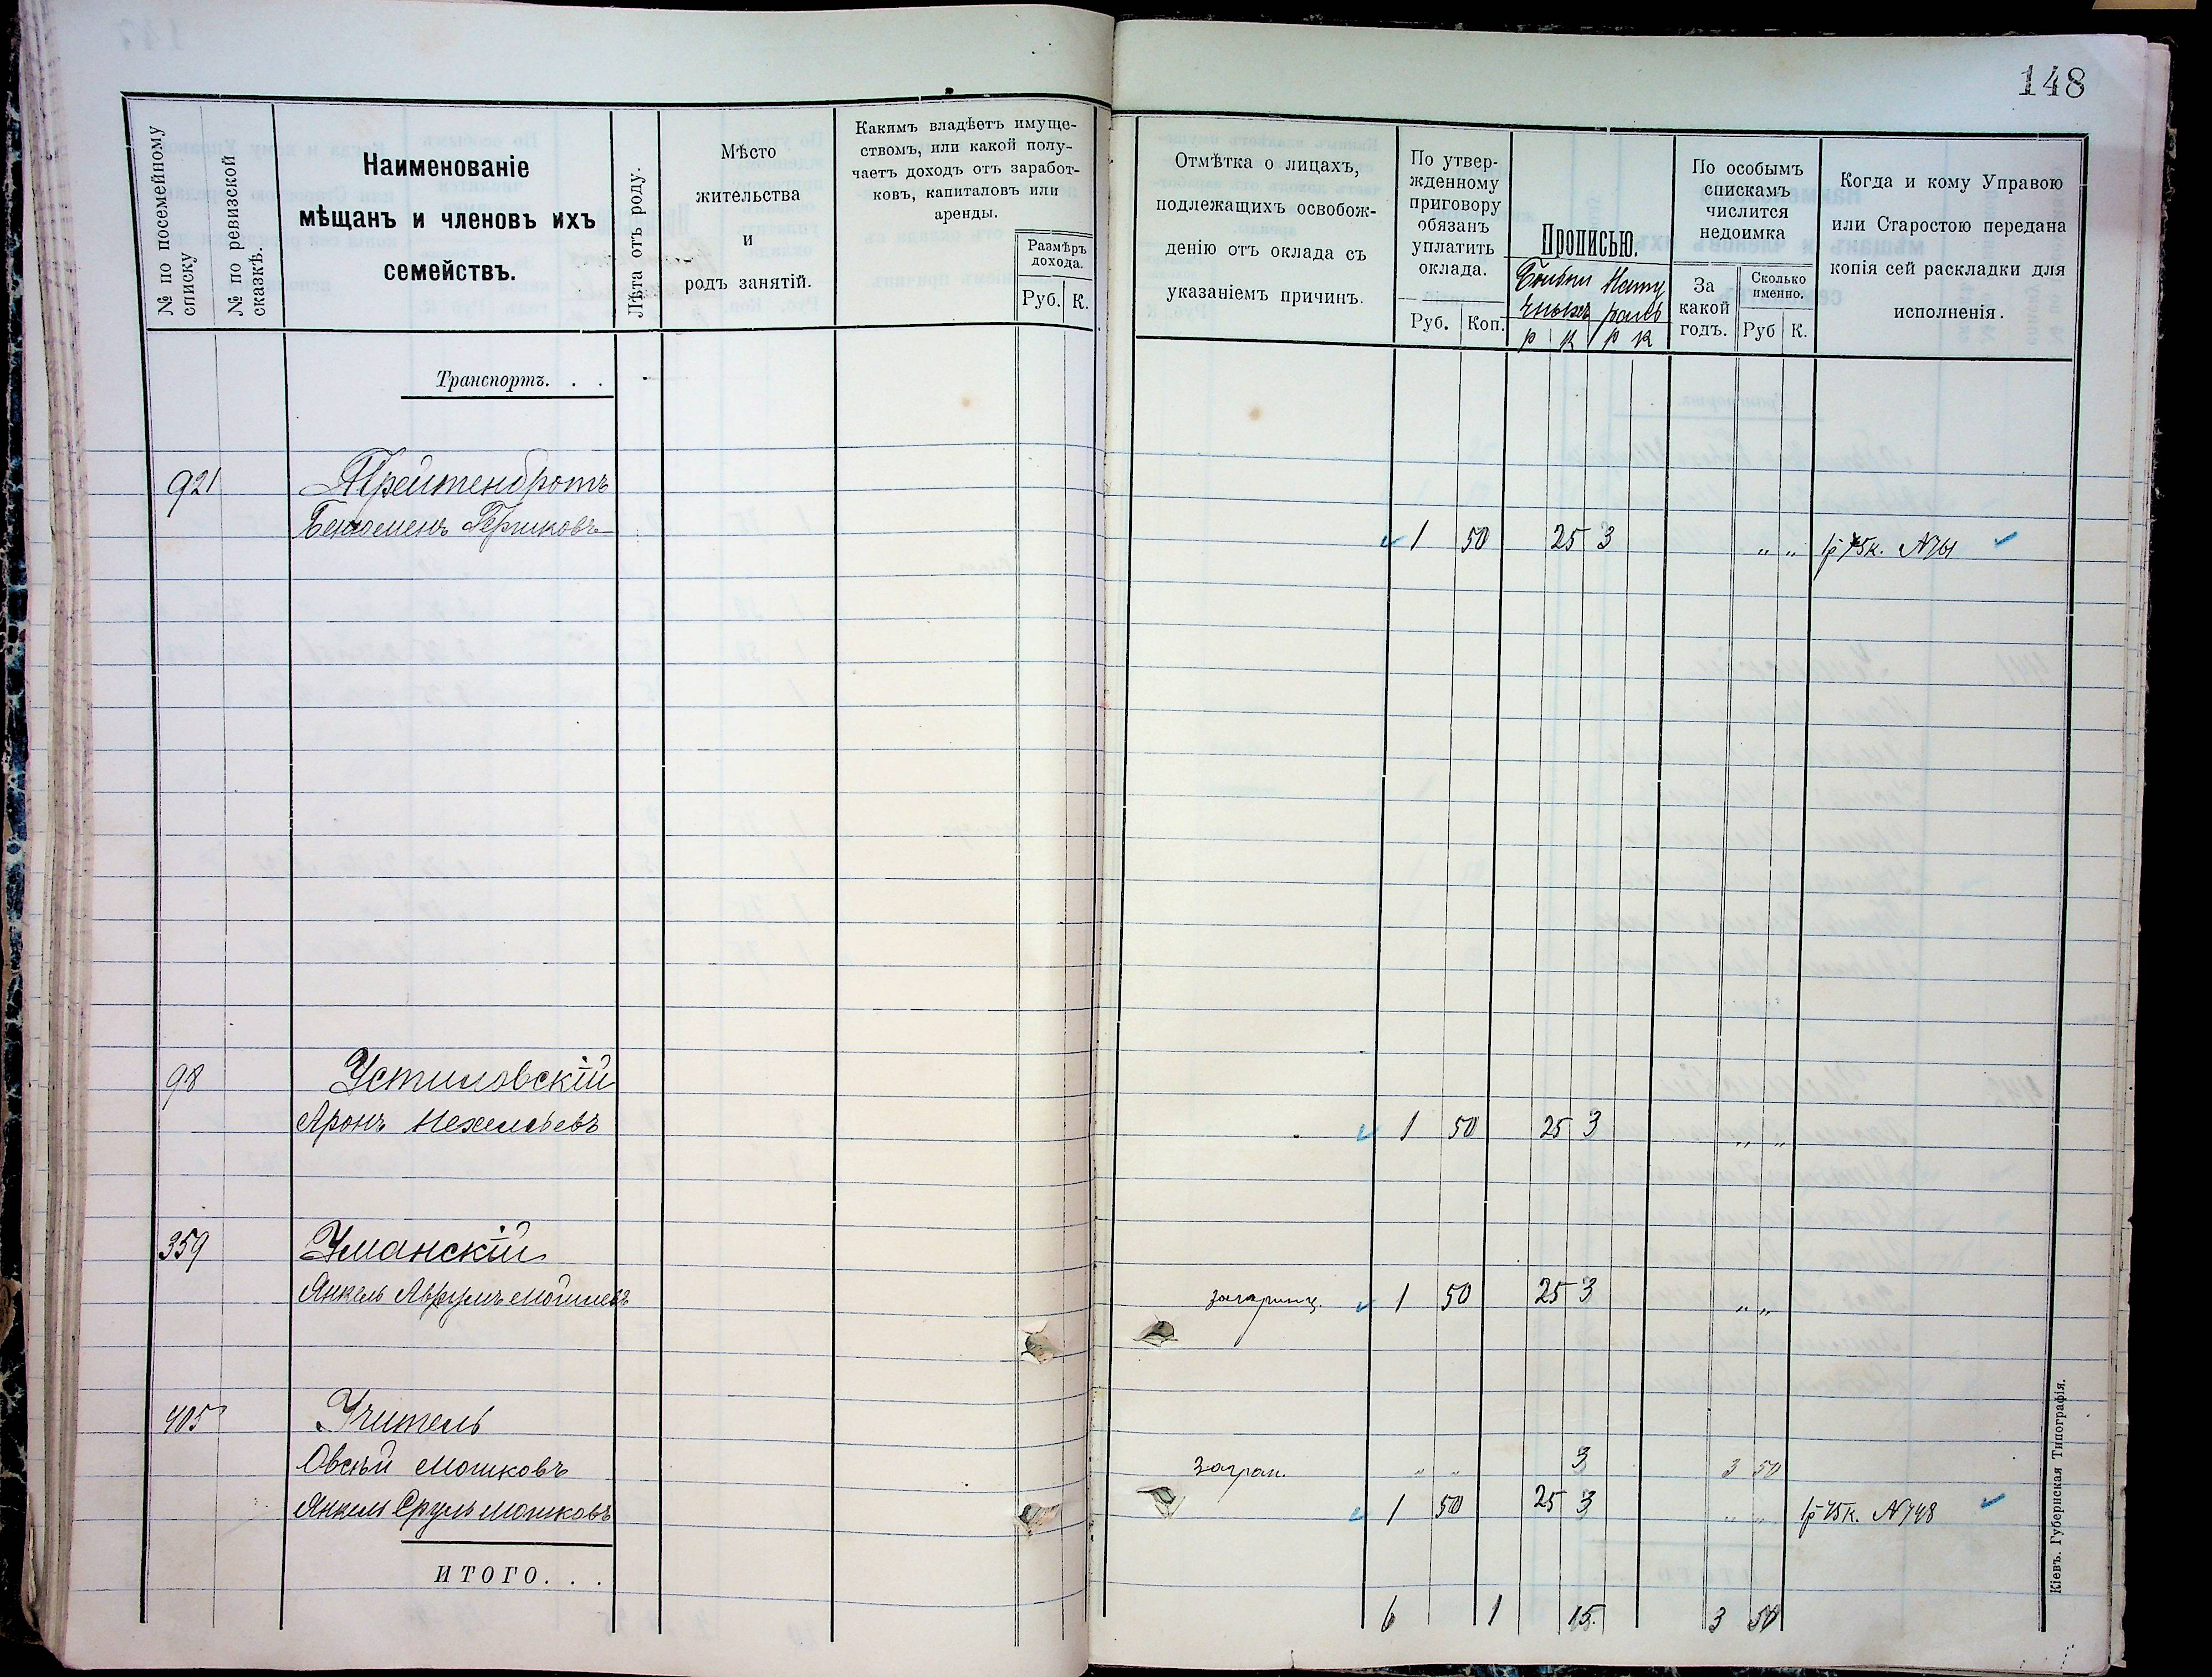 148
№ по посемейному списку
№ по ревизской сказкѣ.
Наименованіе
мѣщанъ и членовъ ихъ
семействъ.
Лѣта отъ роду.
Мѣсто
жительства
и
родъ занятій.
Какимъ владѣетъ имуще-
ствомъ, или какой полу-
чаетъ доходъ отъ заработ-
ковъ, капиталовъ или
аренды.
Размѣръ
дохода.
Руб. К.
Отмѣтка о лицахъ,
подлежащихъ освобож-
денію отъ оклада съ
указаніемъ причинъ.
По утвер-
жденному
приговору
обязанъ
уплатить
оклада.
Руб. Коп.
Прописью.
Больни Нату
чныхъ ральн
р к р к
По особымъ
спискамъ
числится
недоимка
За
какой
годъ.
Сколько
именно.
Руб К.
Когда и кому Управою
или Старостою передана
копія сей раскладки для
исполненія.
Транспортъ. . .
921 Трейтенбротъ
Бенюменъ Гершковъ 1 50 25 3 „ „ 1р 75к. №761
98 Устиловскій
Аронъ Нехемьевъ 1 50 25 3 „ „
359 Уманскій
Янкель Аврумъ Мошковъ 1 50 25 3 „ „
405 Учитель
Овсѣй Мошковъ загран. „ „ 3 3 50
Янкель Сруль Мошковъ 1 50 25 3 „ „ 1р 75к. №748
ИТОГО. . .
6 1 15. 3 50
Кіевъ. Губернская Типографія.